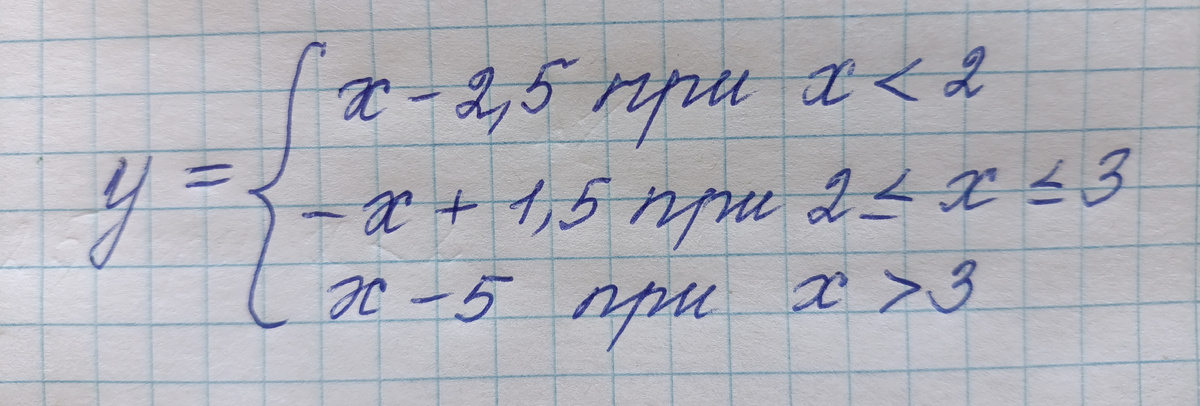 y = { x - 2,5 при x < 2
- x + 1,5 при 2 ≤ x ≤ 3
x - 5 при x > 3